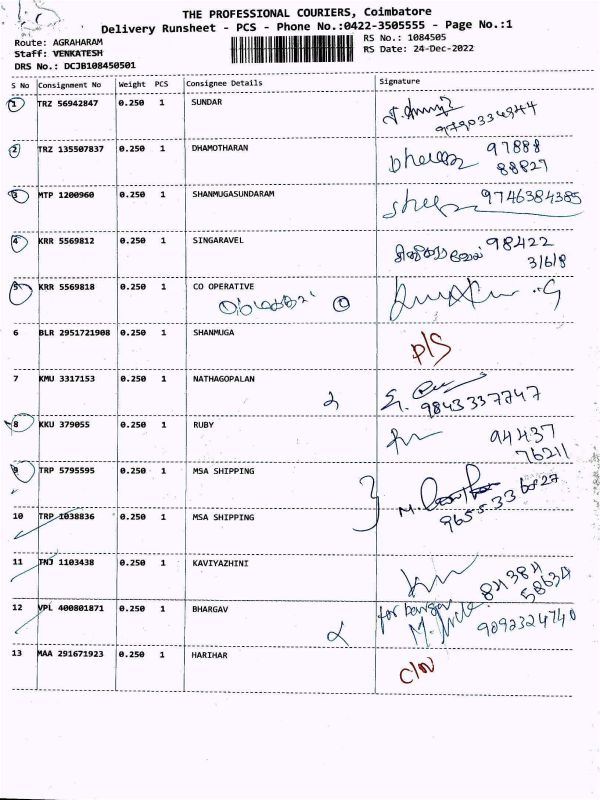 THE PROFESSIONAL COURIERS, Coimbatore
Delivery Runsheet - PCS - Phone No.:0422-3505555 - Page No.:1
Route: AGRAHARAM
Staff: VENKATESH
DRS No.: DCJB108450501
RS No.: 1084505
RS Date: 24-Dec-2022
S No Consignment No Weight PCS Consignee Details Signature
1 TRZ 56942847 0.250 1 SUNDAR
9790334944
2 TRZ 135507837 0.250 1 DHAMOTHARAN 97888
88827
3 MTP 1200960 0.250 1 SHANMUGASUNDARAM 9746384385
4 KRR 5569812 0.250 1 SINGARAVEL 98422
31618
5 KRR 5569818 0.250 1 CO OPERATIVE
6 BLR 2951721908 0.250 1 SHANMUGA P/S
7 KMU 3317153 0.250 1 NATHAGOPALAN
9843337747
8 KKU 379055 0.250 1 RUBY 94437
76211
9 TRP 5795595 0.250 1 MSA SHIPPING
10 TRP 1038836 0.250 1 MSA SHIPPING
11 TNJ 1103438 0.250 1 KAVIYAZHINI 84384
58634
12 VPL 400801871 0.250 1 BHARGAV
9892324740
13 MAA 291671923 0.250 1 HARIHAR C/N